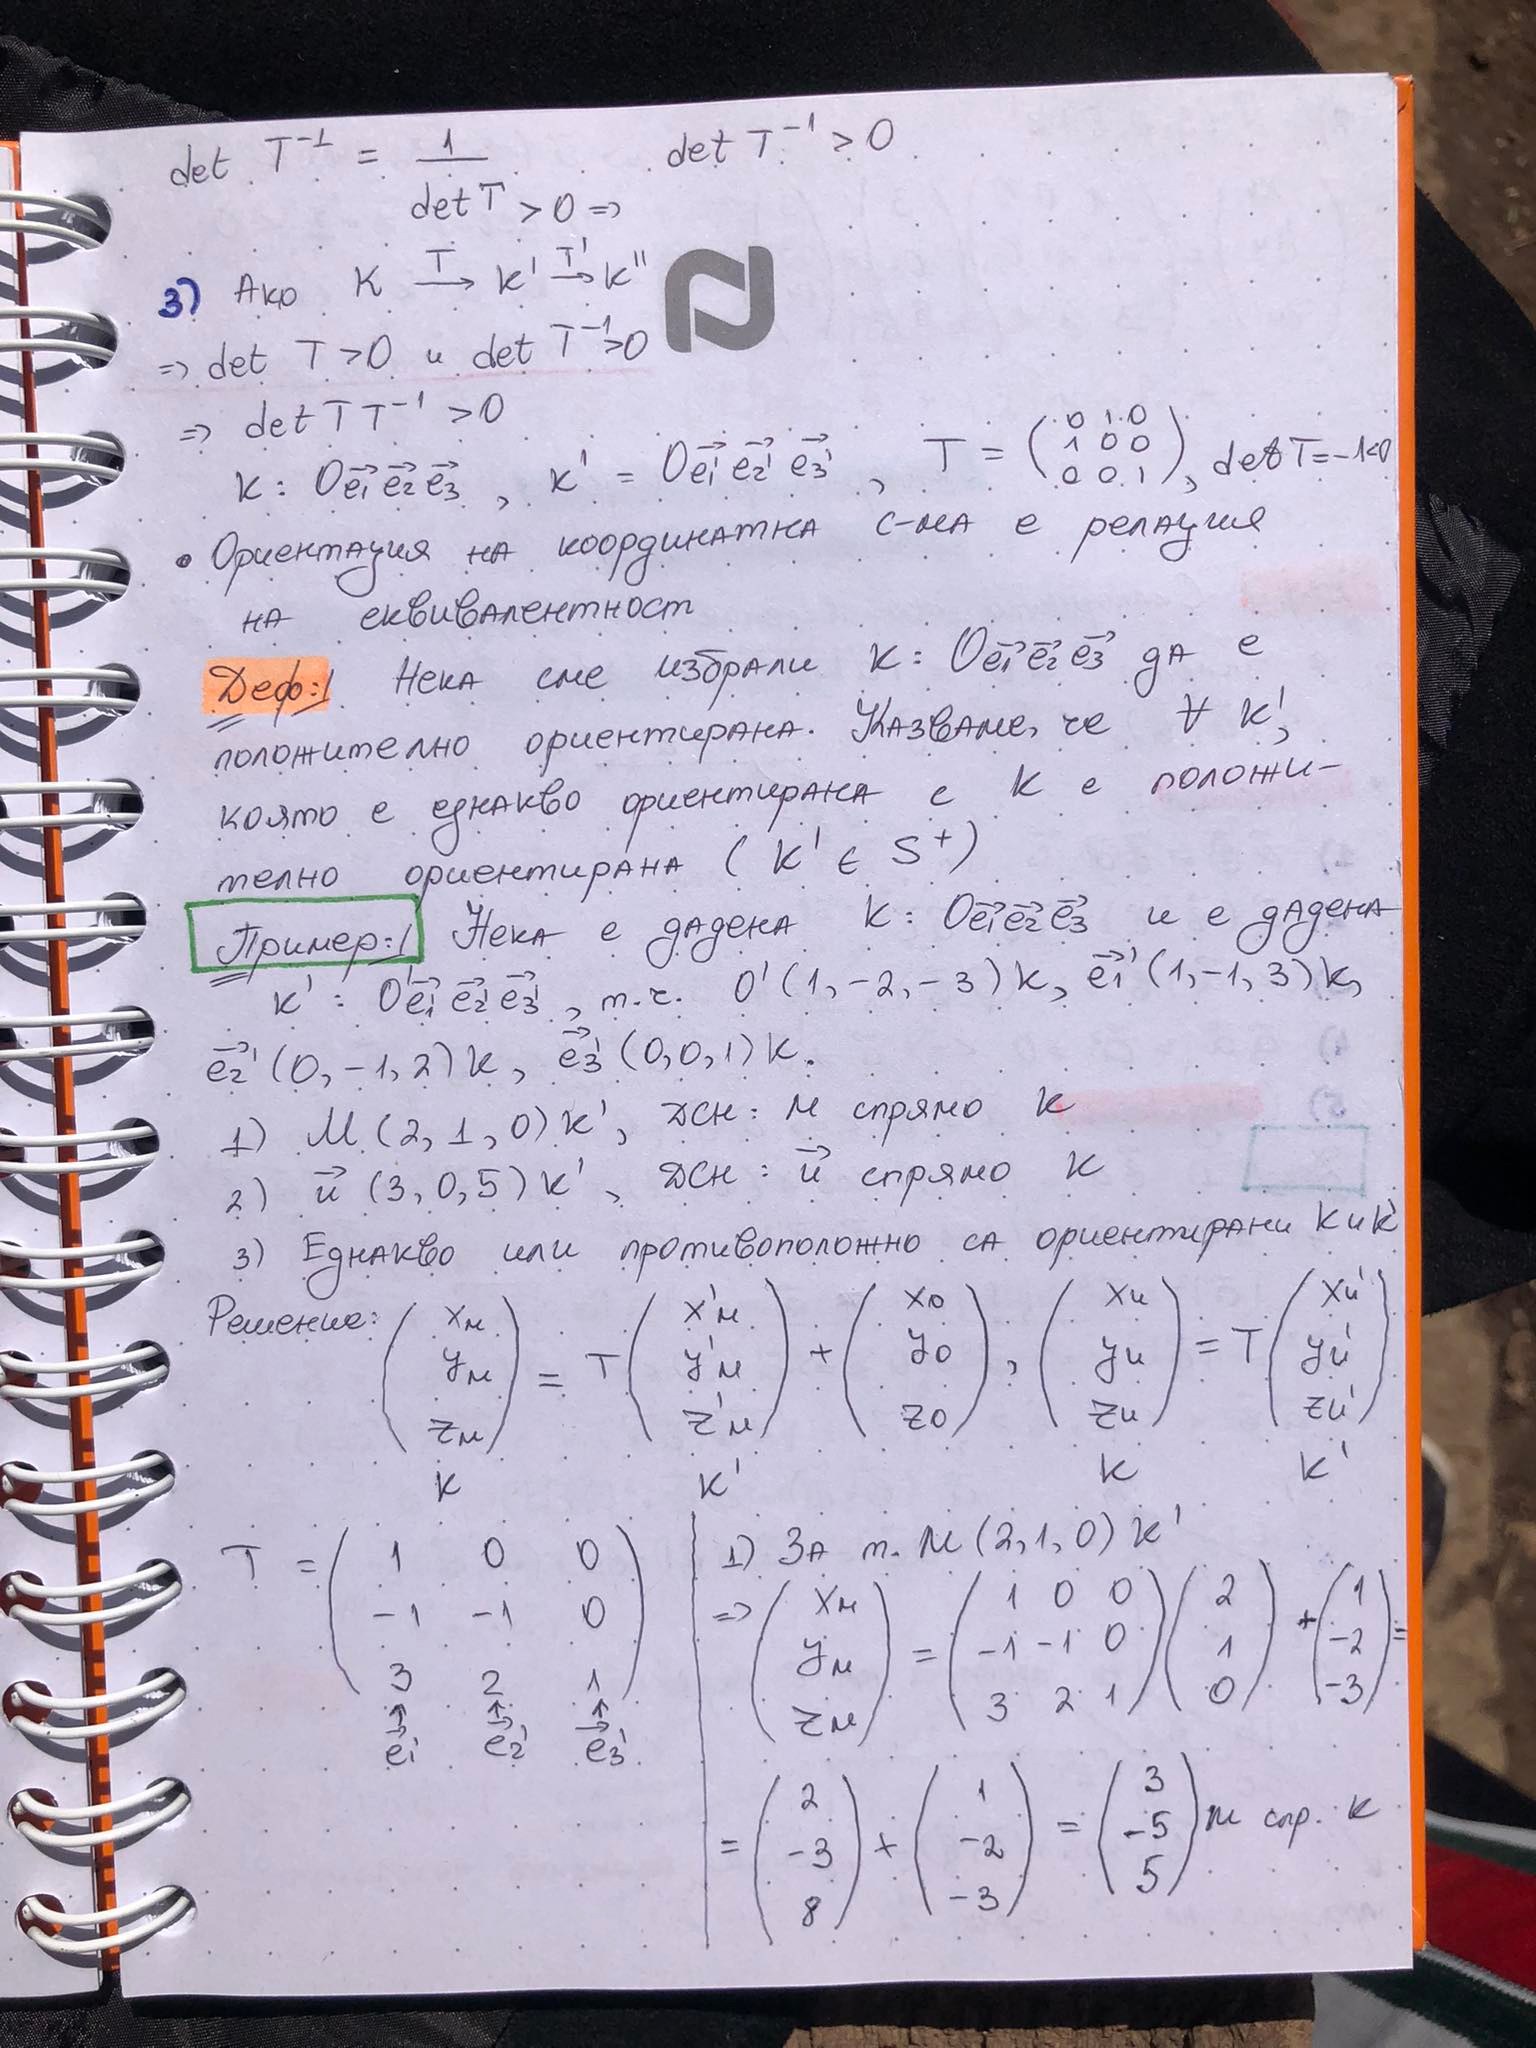 det T⁻¹ = 1 / det T > 0 => det T⁻¹ > 0
3) Ако K →(T) K' →(T') K''
=> det T > 0 и det T⁻¹ > 0
=> det T T⁻¹ > 0
K: O e₁→ e₂→ e₃→ , K' = O e₁'→ e₂'→ e₃'→ , T = (0 1 0 / 1 0 0 / 0 0 1), det T = -1 < 0
• Ориентация на координатна с-ма е релация
на еквивалентност
Деф:1 Нека сме избрали K: O e₁→ e₂→ e₃→ да е
положително ориентирана. Казваме, че ∀ K',
която е еднакво ориентирана с K е положи-
телно ориентирана (K' ∈ S⁺)
Пример:1 Нека е дадена K: O e₁→ e₂→ e₃→ и е дадена
K': O e₁'→ e₂'→ e₃'→ , т.ч. O'(1,-2,-3)K, e₁'→(1,-1,3)K,
e₂'→(0,-1,2)K, e₃'→(0,0,1)K.
1) M(2,1,0)K', ДСН: M спрямо K
2) u→(3,0,5)K', ДСН: u→ спрямо K
3) Еднакво или противоположно са ориентирани K и K'
Решение: (xм / yм / zм) K = T (x'м / y'м / z'м) K' + (x₀ / y₀ / z₀), (xu / yu / zu) K = T (xu' / yu' / zu') K'
T = (1 0 0 / -1 -1 0 / 3 2 1)
↑ ↑ ↑
e₁'→ e₂'→ e₃'→
1) За т. M(2,1,0)K'
=> (xм / yм / zм) = (1 0 0 / -1 -1 0 / 3 2 1) (2 / 1 / 0) + (1 / -2 / -3) =
= (2 / -3 / 8) + (1 / -2 / -3) = (3 / -5 / 5) M спр. K